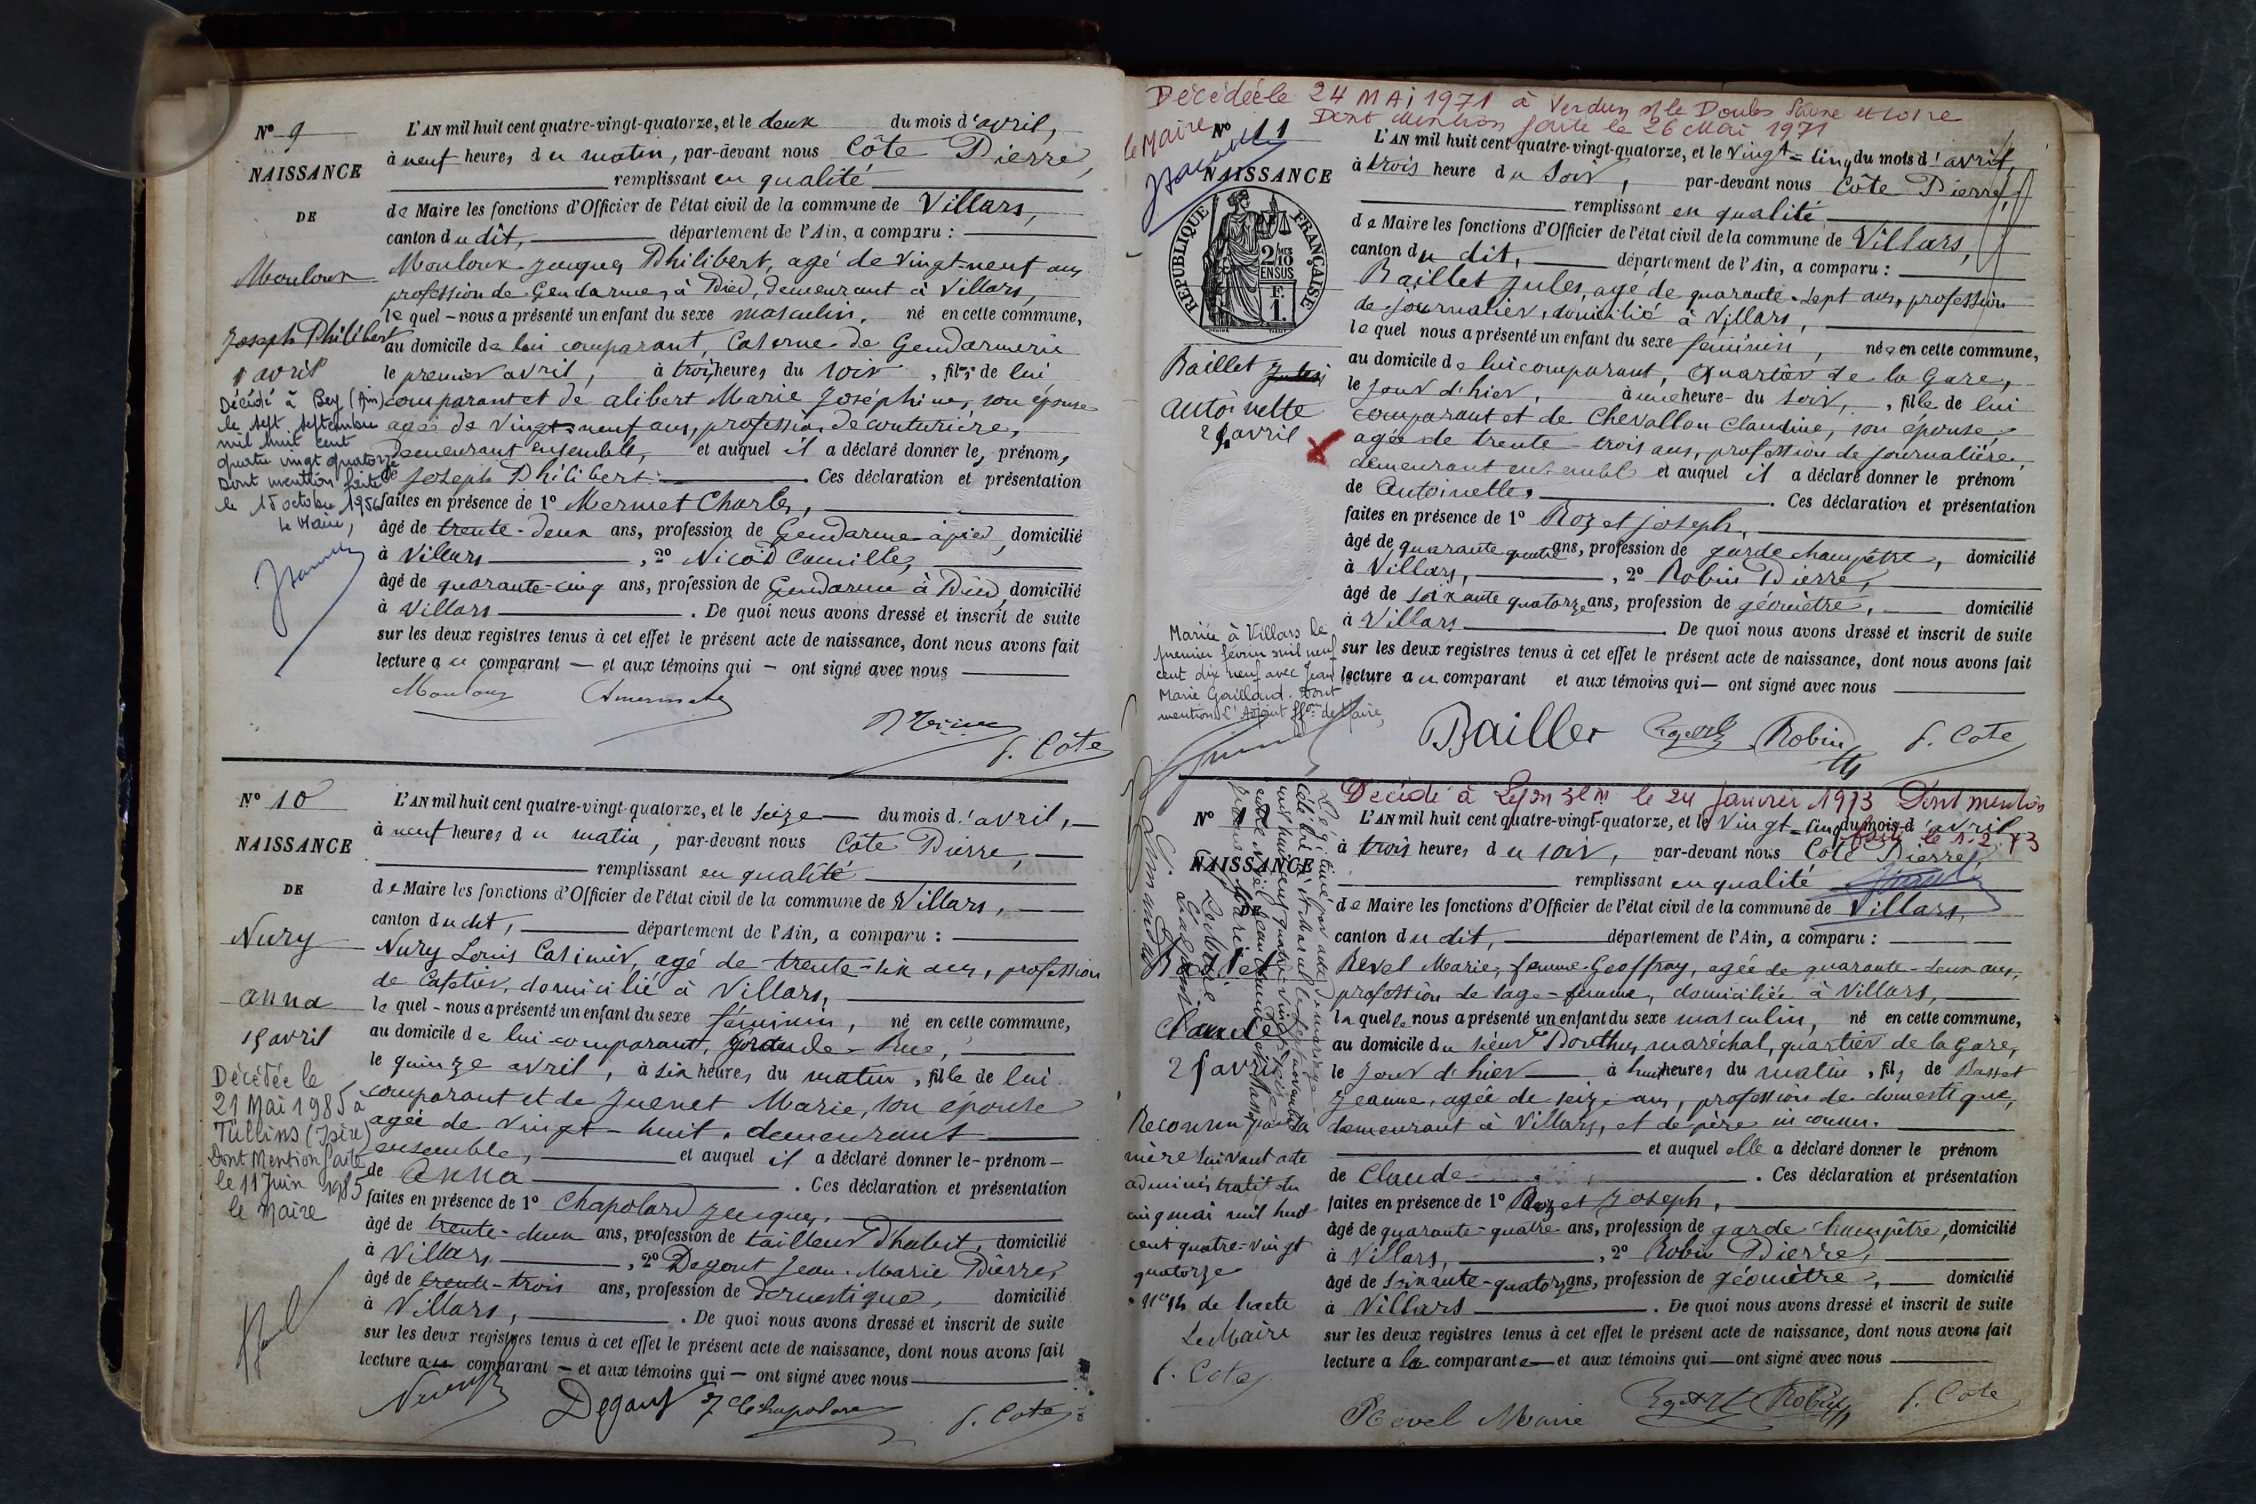 N° 9
NAISSANCE
DE
Mouloux
Joseph Philibert
1 avril
Décédé à Bey (Ain)
le sept septembre
mil huit cent
quatre vingt quatorze
Dont mention faite
le 15 octobre 1956
Le Maire,
L'AN mil huit cent quatre-vingt-quatorze, et le deux du mois d'avril,
à neuf heures du matin, par-devant nous Côte Pierre,
remplissant en qualité
de Maire les fonctions d'Officier de l'état civil de la commune de Villars,
canton dudit, département de l'Ain, a comparu :
Mouloux Jacques Philibert, agé de vingt-neuf ans
profession de Gendarme, à Pied, demeurant à Villars,
lequel nous a présenté un enfant du sexe masculin, né en cette commune,
au domicile de lui comparant, Caserne de Gendarmerie
le premier avril, à trois heures du soir, fils de lui
comparant et de alibert Marie Joséphine, son épouse
agée de vingt-neuf ans, profession de couturière,
Demeurant ensemble, et auquel il a déclaré donner les prénoms
de Joseph Philibert. Ces déclaration et présentation
faites en présence de 1° Mermet Charles,
âgé de trente-deux ans, profession de Gendarme à pied, domicilié
à Villars, 2° Nicod Camille,
âgé de quarante-cinq ans, profession de Gendarme à Pied, domicilié
à Villars. De quoi nous avons dressé et inscrit de suite
sur les deux registres tenus à cet effet le présent acte de naissance, dont nous avons fait
lecture au comparant et aux témoins qui ont signé avec nous
Mouloux
P. Côte
N° 10
NAISSANCE
DE
Nury
Anna
15 avril
Décédée le
21 Mai 1985 à
Tullins (Isère)
Dont Mention faite
le 11 Juin 1985
le Maire
L'AN mil huit cent quatre-vingt-quatorze, et le seize du mois d'avril,
à neuf heures du matin, par-devant nous Côte Pierre,
remplissant en qualité
de Maire les fonctions d'Officier de l'état civil de la commune de Villars,
canton dudit, département de l'Ain, a comparu :
Nury Louis Casimir, agé de trente-six ans, profession
de Cafetier, domicilié à Villars,
lequel nous a présenté un enfant du sexe féminin, né en cette commune,
au domicile de lui comparant, grande Rue,
le quinze avril, à six heures du matin, fille de lui
comparant et de Juenet Marie, son épouse
agée de vingt-huit, demeurant
ensemble, et auquel il a déclaré donner le prénom
de Anna. Ces déclaration et présentation
faites en présence de 1° Chapolard Jacques,
âgé de trente-deux ans, profession de tailleur d'habit, domicilié
à Villars, 2° Degout Jean-Marie Pierre,
âgé de trente-trois ans, profession de domestique, domicilié
à Villars,. De quoi nous avons dressé et inscrit de suite
sur les deux registres tenus à cet effet le présent acte de naissance, dont nous avons fait
lecture au comparant et aux témoins qui ont signé avec nous
Degout J Chapolard P. Cote
Décédée le 24 MAI 1971 à Verdun s/le Doubs Saône et Loire
Dont Mention faite le 26 Mai 1971
le Maire
N° 11
NAISSANCE
RÉPUBLIQUE FRANÇAISE
2/10
EN SUS
F.
1.
Baillet
Antoinette
24 avril
Mariée à Villars le
premier février mil neuf
cent dix neuf avec Jean
Marie Gaillard. Dont
mention l'Adjoint ff.on de Maire,
L'AN mil huit cent quatre-vingt-quatorze, et le vingt-cinq du mois d'avril
à trois heure du soir, par-devant nous Côte Pierre,
remplissant en qualité
de Maire les fonctions d'Officier de l'état civil de la commune de Villars,
canton du dit, département de l'Ain, a comparu :
Baillet Jules, agé de quarante-sept ans, profession
de journalier, domicilié à Villars,
lequel nous a présenté un enfant du sexe féminin, née en cette commune,
au domicile de lui comparant, Quartier de la Gare,
le jour d'hier, à une heure du soir, fille de lui
comparant et de Chevallon Claudine, son épouse,
agée de trente-trois ans, profession de journalière,
demeurant ensemble et auquel il a déclaré donner le prénom
de Antoinette,. Ces déclaration et présentation
faites en présence de 1° Rozet Joseph,
âgé de quarante quatre ans, profession de garde champêtre, domicilié
à Villars, 2° Robin Pierre,
âgé de soixante quatorze ans, profession de géomètre, domicilié
à Villars. De quoi nous avons dressé et inscrit de suite
sur les deux registres tenus à cet effet le présent acte de naissance, dont nous avons fait
lecture au comparant et aux témoins qui ont signé avec nous
Robin P. Cote
Décédé à Lyon 3em le 24 Janvier 1973 Dont mention
faite le 1.2.73
N° 12
NAISSANCE
Claude
Reconnu par sa
mère suivant acte
administratif du
cinq mai mil huit
cent quatre-vingt
quatorze
n° 14 de l'acte
Le Maire
P. Cote
L'AN mil huit cent quatre-vingt-quatorze, et le vingt-cinq du mois d'avril
à trois heures du soir, par-devant nous Côte Pierre,
remplissant en qualité
de Maire les fonctions d'Officier de l'état civil de la commune de Villars,
canton dudit, département de l'Ain, a comparu :
Revel Marie, femme Geoffray, agée de quarante-deux ans,
profession de sage-femme, domiciliée à Villars,
laquelle nous a présenté un enfant du sexe masculin, né en cette commune,
au domicile du sieur Ponthus, maréchal, quartier de la Gare,
le jour d'hier à huit heures du matin, fils de Basset
Jeanne, agée de seize ans, profession de domestique,
demeurant à Villars, et de père inconnu.
et auquel elle a déclaré donner le prénom
de Claude. Ces déclaration et présentation
faites en présence de 1° Rozet Joseph,
âgé de quarante-quatre ans, profession de garde champêtre, domicilié
à Villars, 2° Robin Pierre,
âgé de soixante-quatorze ans, profession de géomètre, domicilié
à Villars. De quoi nous avons dressé et inscrit de suite
sur les deux registres tenus à cet effet le présent acte de naissance, dont nous avons fait
lecture a la comparante et aux témoins qui ont signé avec nous
Revel Marie Robin P. Cote